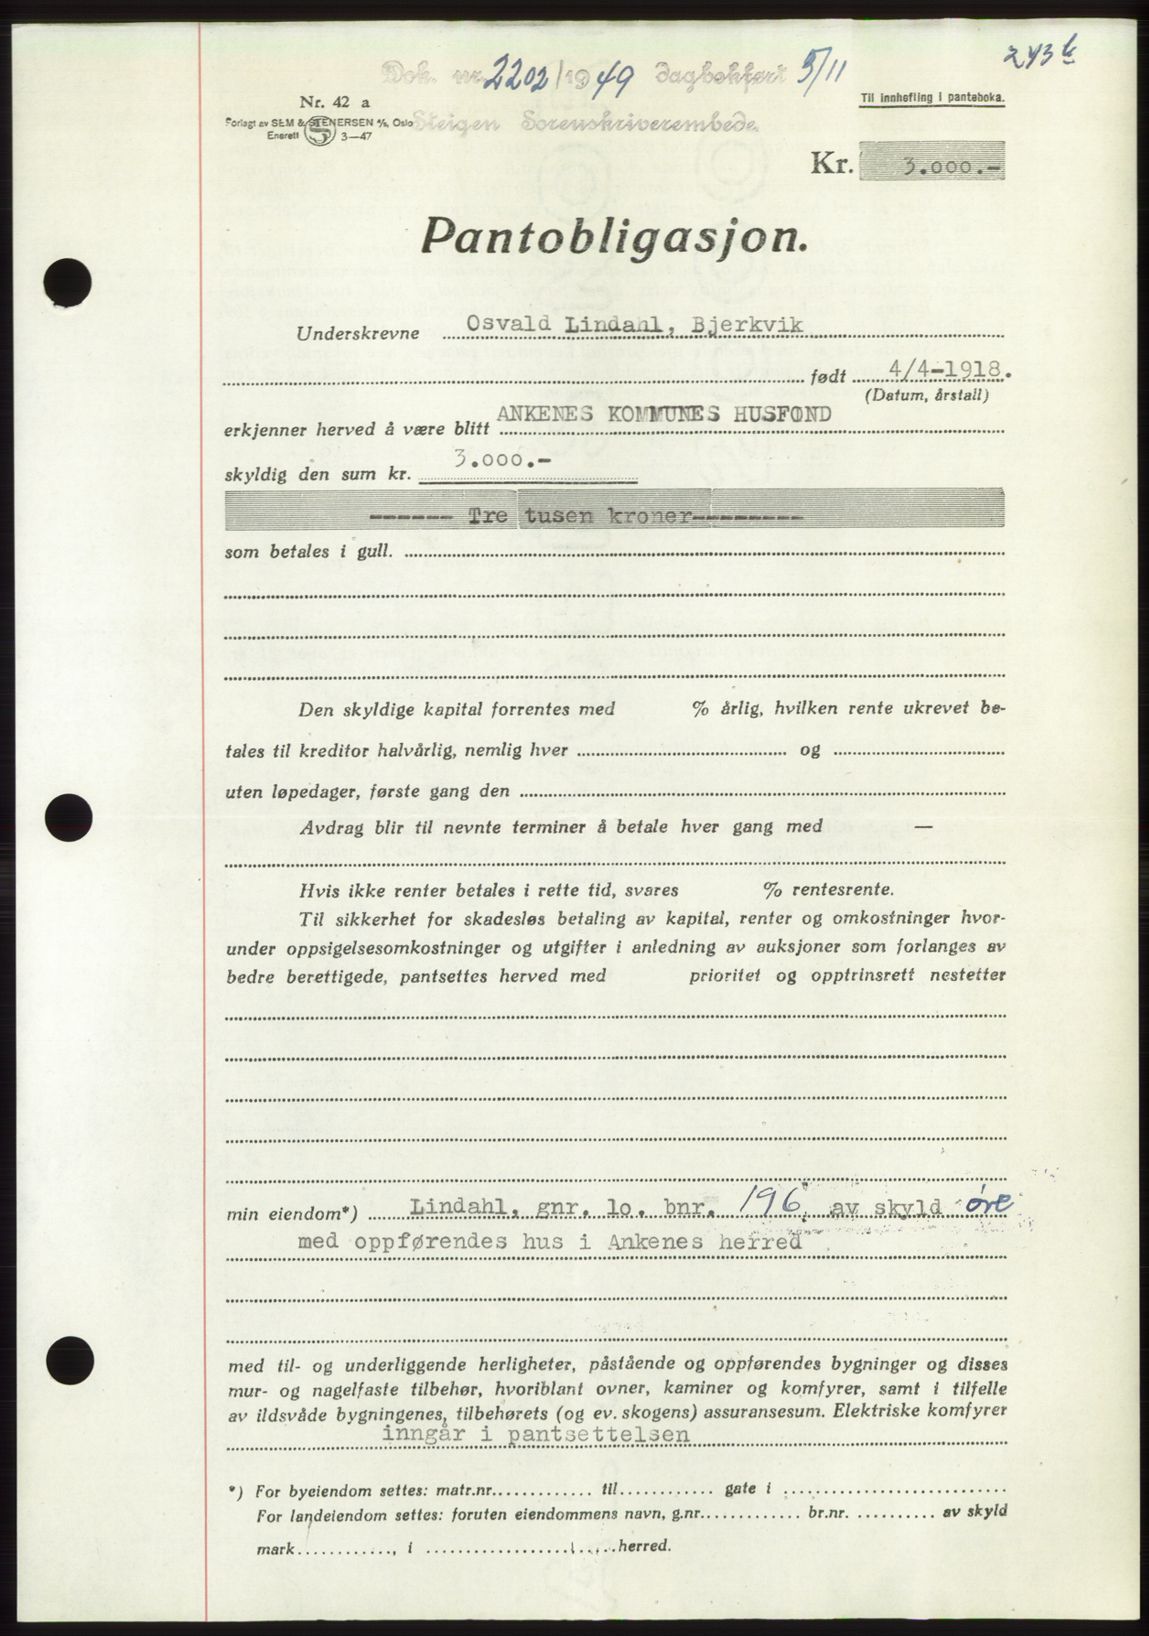 243 b
Dok. nr. 2202/1949 dagbokført 5/11
Steigen Sorenskriverembede.
Nr. 42 a
Forlagt av SEM & STENERSEN A/S, Oslo
Enerett S 3—47
Til innhefting i panteboka.
Kr. 3.000.-
Pantobligasjon.
Underskrevne Osvald Lindahl, Bjerkvik
født 4/4-1918.
(Datum, årstall)
erkjenner herved å være blitt ANKENES KOMMUNES HUSFOND
skyldig den sum kr. 3.000.-
------ Tre tusen kroner--------
som betales i gull.
Den skyldige kapital forrentes med % årlig, hvilken rente ukrevet be-
tales til kreditor halvårlig, nemlig hver og
uten løpedager, første gang den
Avdrag blir til nevnte terminer å betale hver gang med —
Hvis ikke renter betales i rette tid, svares % rentesrente.
Til sikkerhet for skadesløs betaling av kapital, renter og omkostninger hvor-
under oppsigelsesomkostninger og utgifter i anledning av auksjoner som forlanges av
bedre berettigede, pantsettes herved med prioritet og opptrinsrett nestetter
min eiendom*) Lindahl, gnr. lo. bnr. 196 av skyld øre
med oppførendes hus i Ankenes herred
med til- og underliggende herligheter, påstående og oppførendes bygninger og disses
mur- og nagelfaste tilbehør, hvoriblant ovner, kaminer og komfyrer, samt i tilfelle
av ildsvåde bygningenes, tilbehørets (og ev. skogens) assuransesum. Elektriske komfyrer
inngår i pantsettelsen
*) For byeiendom settes: matr.nr. til gate i
For landeiendom settes: foruten eiendommens navn, g.nr. br.nr. av skyld
mark , i herred.